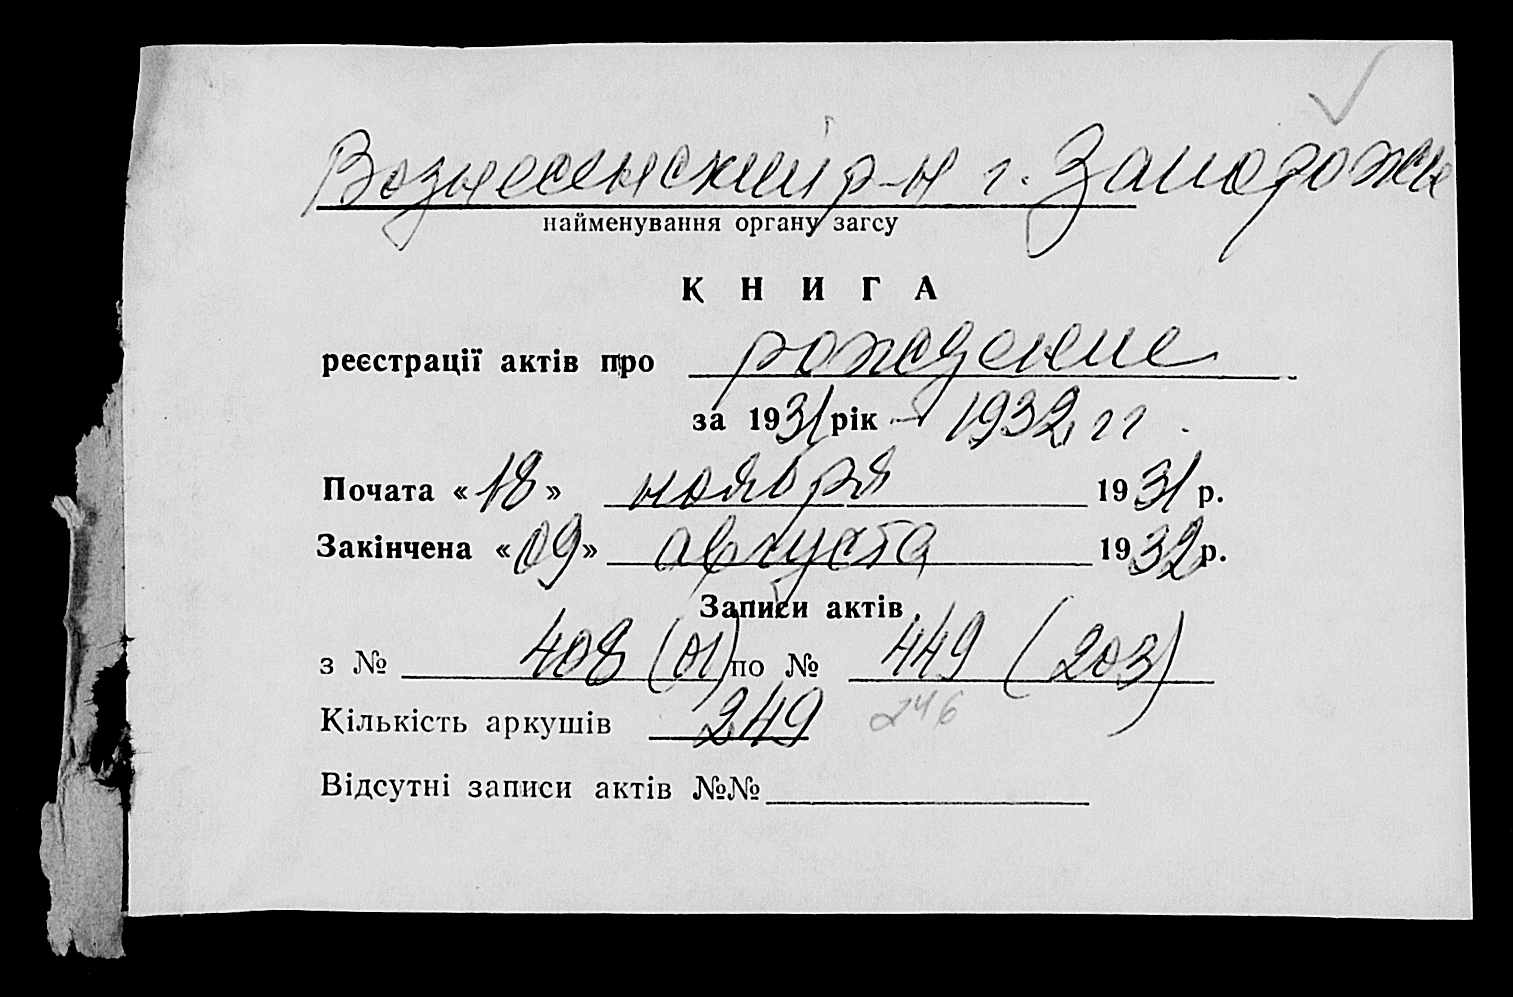 Вознесенский р-н г. Запорожье
найменування органу загсу
КНИГА
реєстрації актів про рождение
за 1931 рік – 1932 гг.
Почата «18» ноября 1931 р.
Закінчена «09» августа 1932 р.
Записи актів
з № 408 (01) по № 449 (203)
Кількість аркушів 249 246
Відсутні записи актів №№